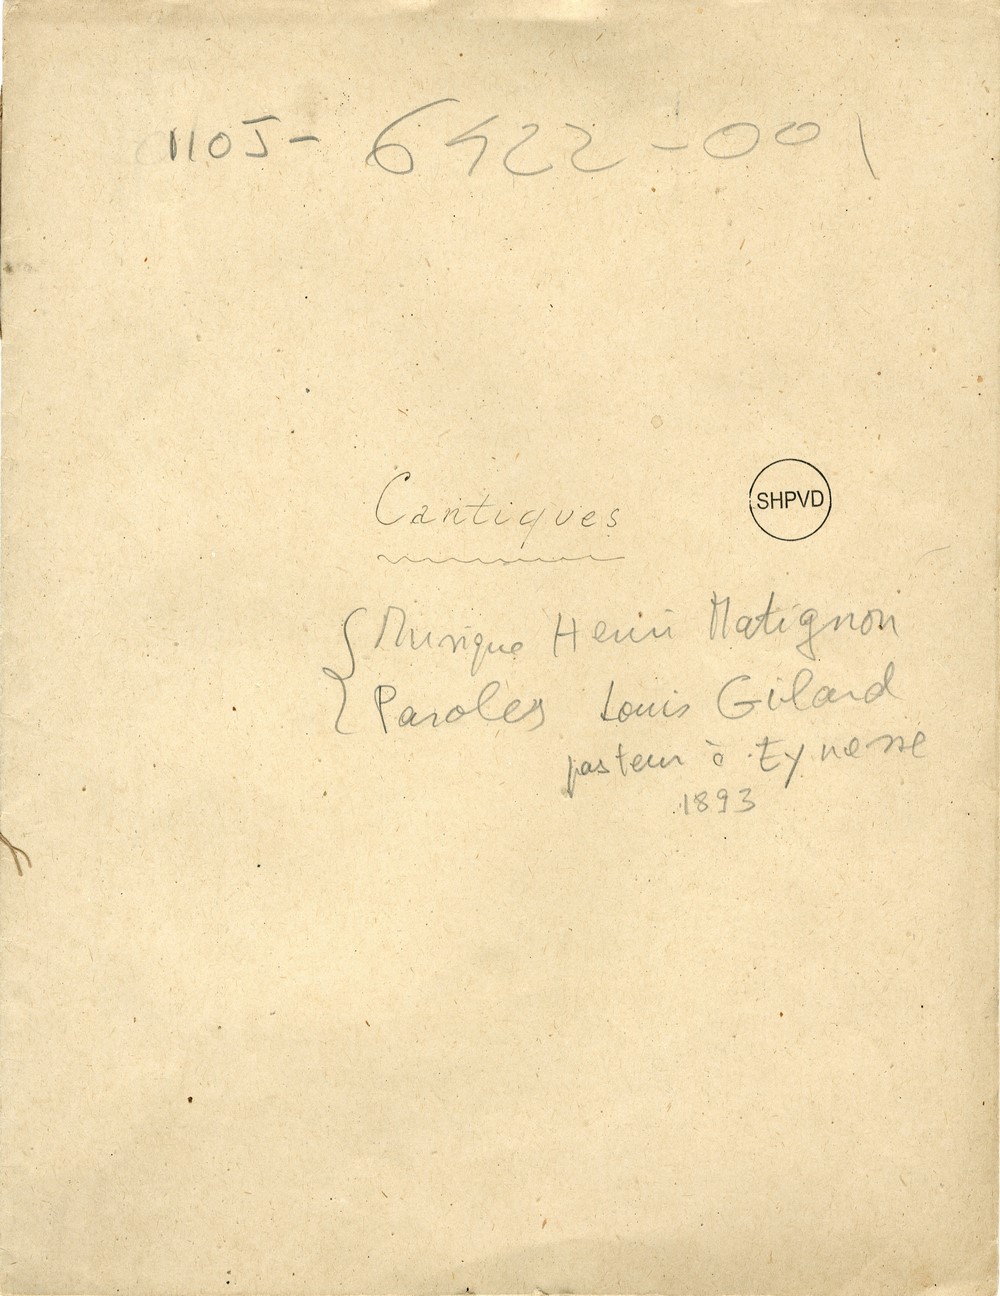 110J- 6422-001
Cantiques
SHPVD
Musique Henri Matignon
Paroles Louis Gilard
pasteur à Eynesse
1893